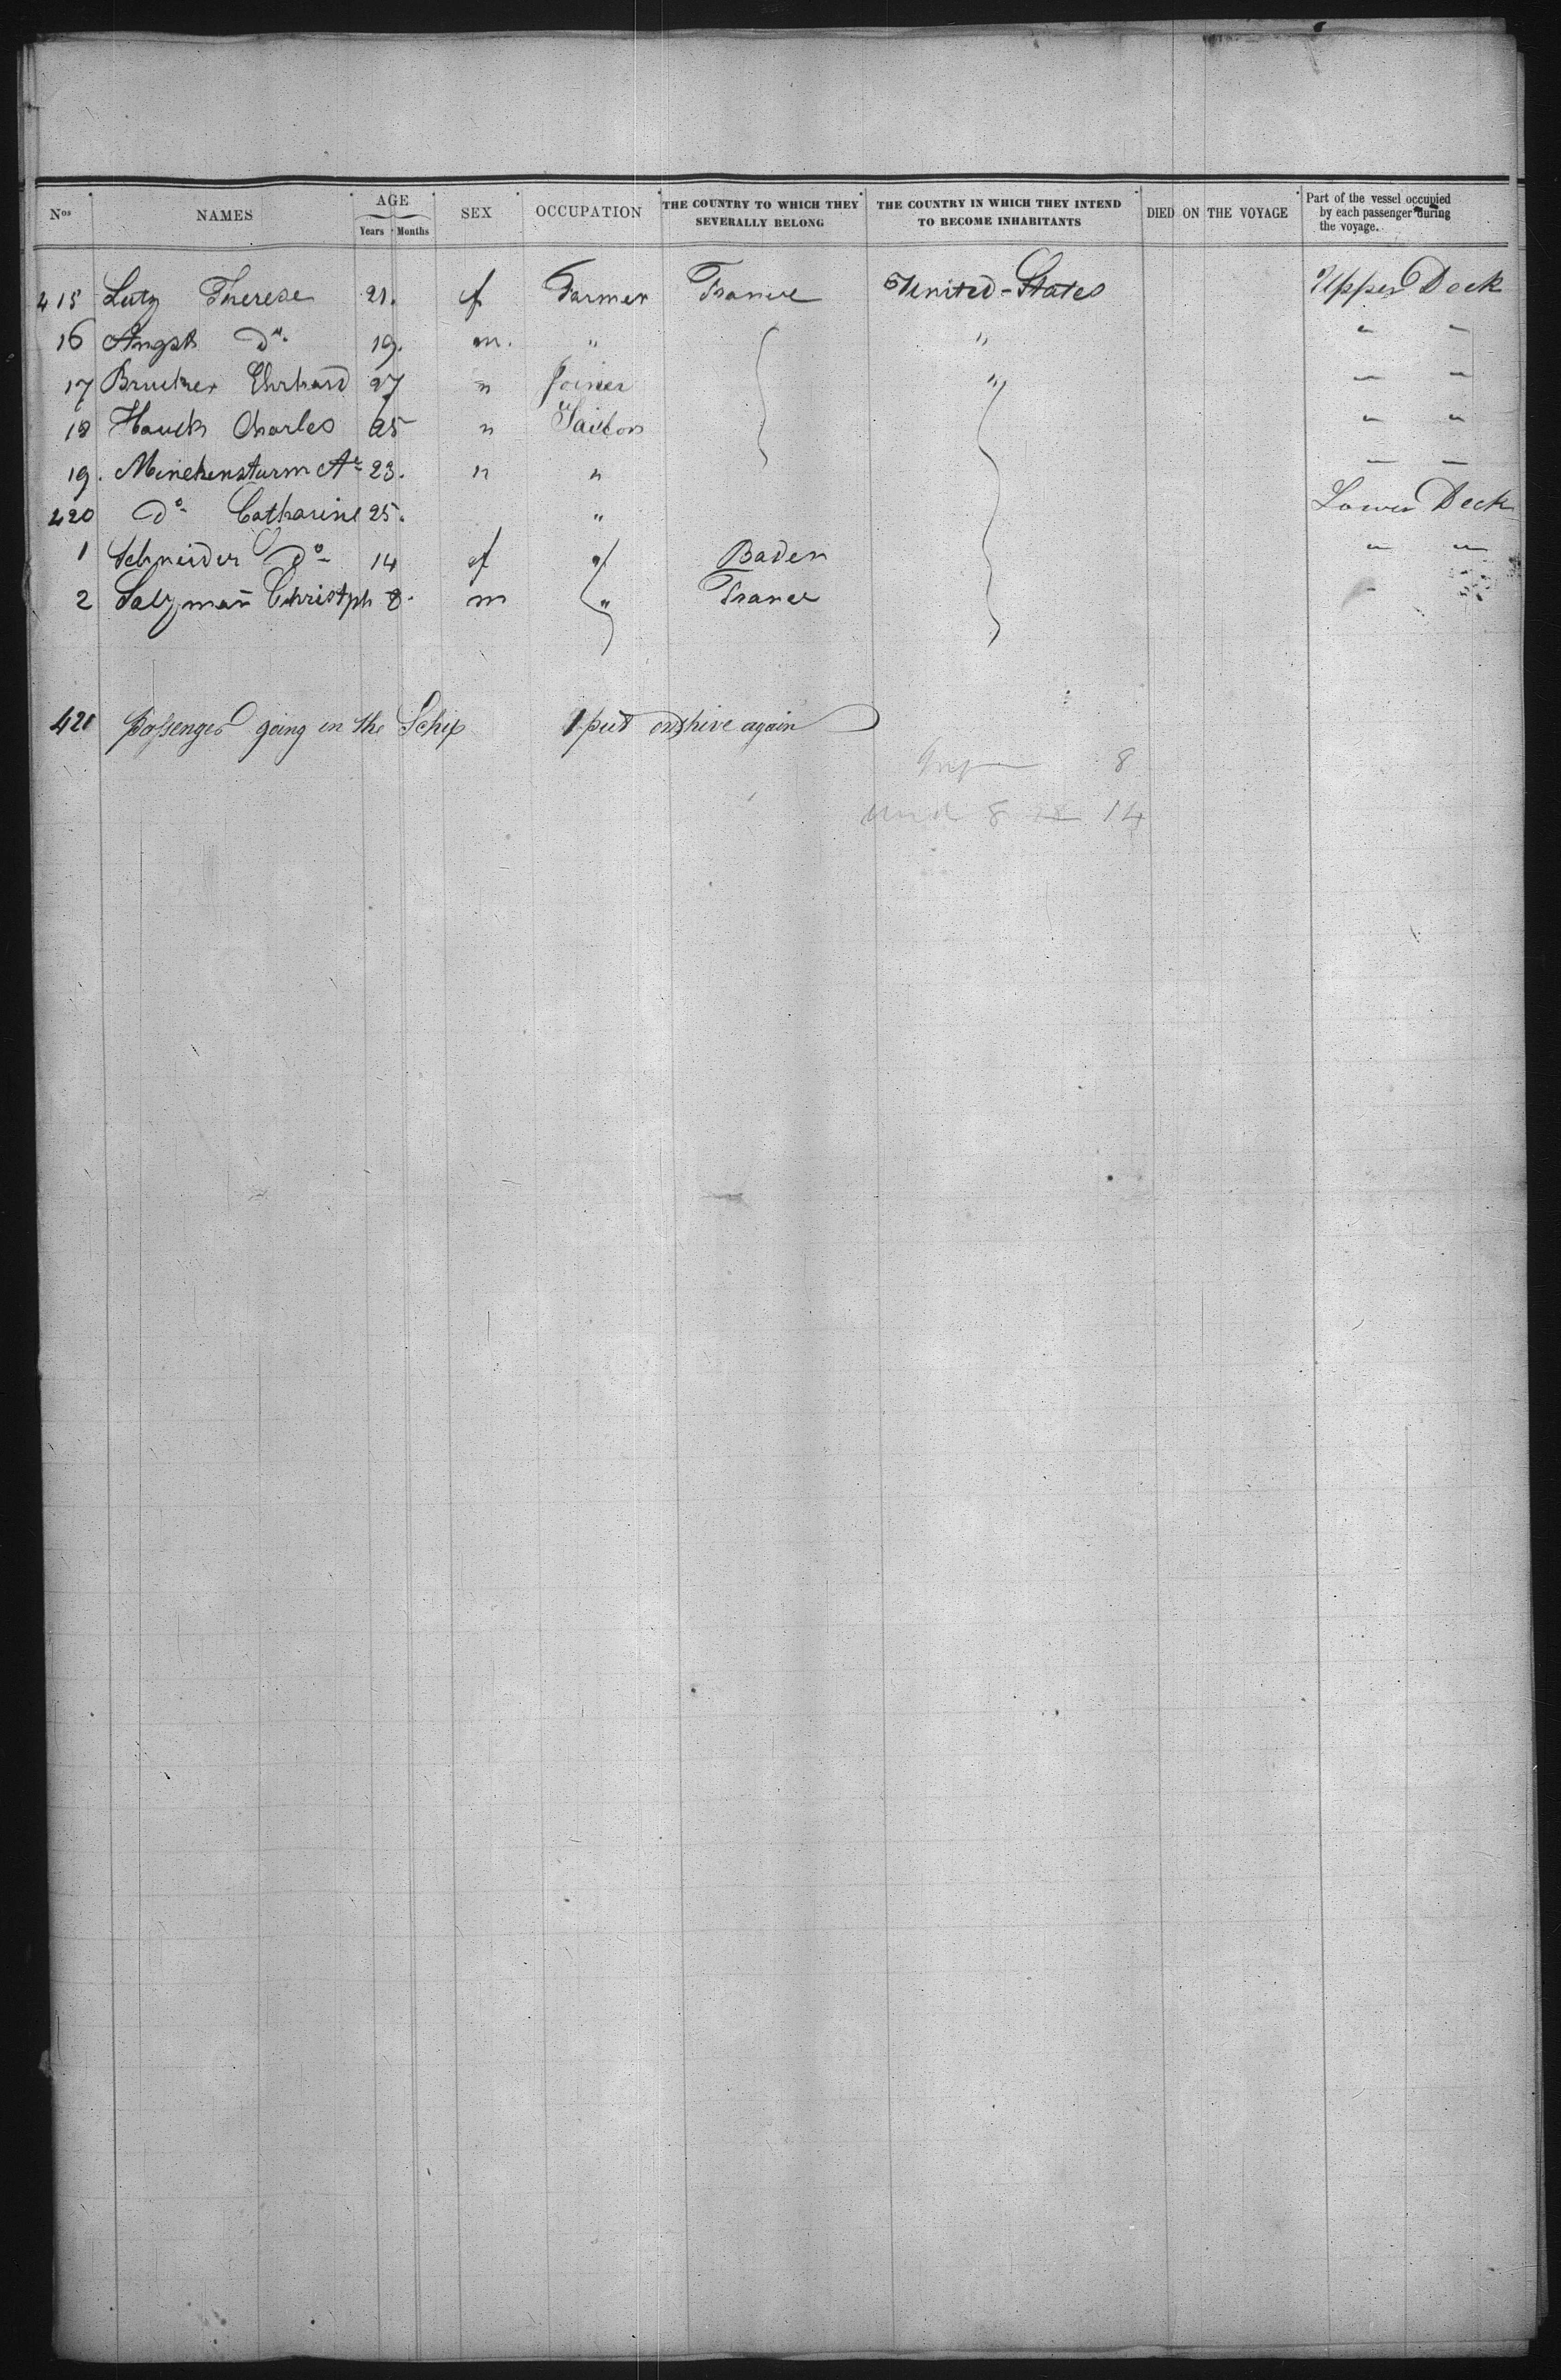 Nos NAMES AGE Years Months SEX OCCUPATION THE COUNTRY TO WHICH THEY SEVERALLY BELONG THE COUNTRY IN WHICH THEY INTEND TO BECOME INHABITANTS DIED ON THE VOYAGE Part of the vessel occupied by each passenger during the voyage.
415 Lutz Therese 21. f Farmer France United-States Upper Deck
16 Angst do. 19. m. " " " "
17 Brucker Ehrhard 27 " Joiner " " "
18 Hauck Charles 25 " Tailor " "
19. Minchensturm Ae 23. " " " "
420 do Catharine 25. " Lower Deck
1 Schneider do 14 f " Baden " "
2 Salzman̄ Christph 8. m " France "
421 passenger going on the Schip 1 put onshive again
8
und 8 14